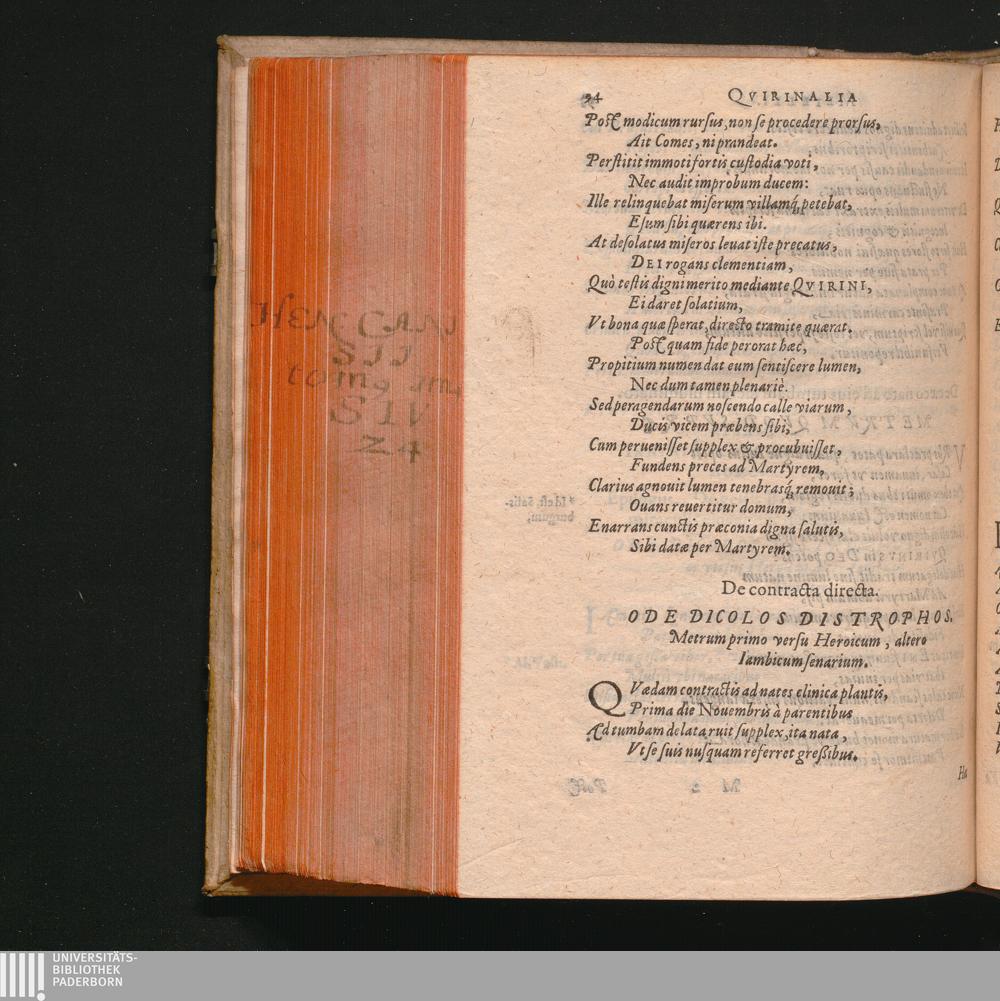 94 QVIRINALIA
Post modicum rursus, non se procedere prorsus,
Ait Comes, ni prandeat.
Perstitit immoti fortis custodia voti,
Nec audit improbum ducem:
Ille relinquebat miserum villamq́; petebat,
Esum sibi quærens ibi.
At desolatus miseros leuat iste precatus,
DEI rogans clementiam,
Quò testis digni merito mediante QVIRINI,
Ei daret solatium,
Vt bona quæ sperat, directo tramite quærat.
Post quam fide perorat hæc,
Propitium numen dat eum sentiscere lumen,
Nec dum tamen plenariè.
Sed peragendarum noscendo calle viarum,
Ducis vicem præbens sibi,
Cum peruenisset supplex & procubuisset,
Fundens preces ad Martyrem,
Clarius agnouit lumen tenebrasq́; remouit;
Ouans reuertitur domum,
Enarrans cunctis præconia digna salutis,
Sibi datæ per Martyrem.
De contracta directa.
ODE DICOLOS DISTROPHOS.
Metrum primo versu Heroicum, altero
Iambicum senarium.
QVædam contractis ad nates clinica plantis,
Prima die Nouembris à parentibus
Ad tumbam delata ruit supplex, ita nata,
Vt se suis nusquam referret gressibus.
HENR CANI
SII
tom9
SIV
24
UNIVERSITÄTS-
BIBLIOTHEK
PADERBORN